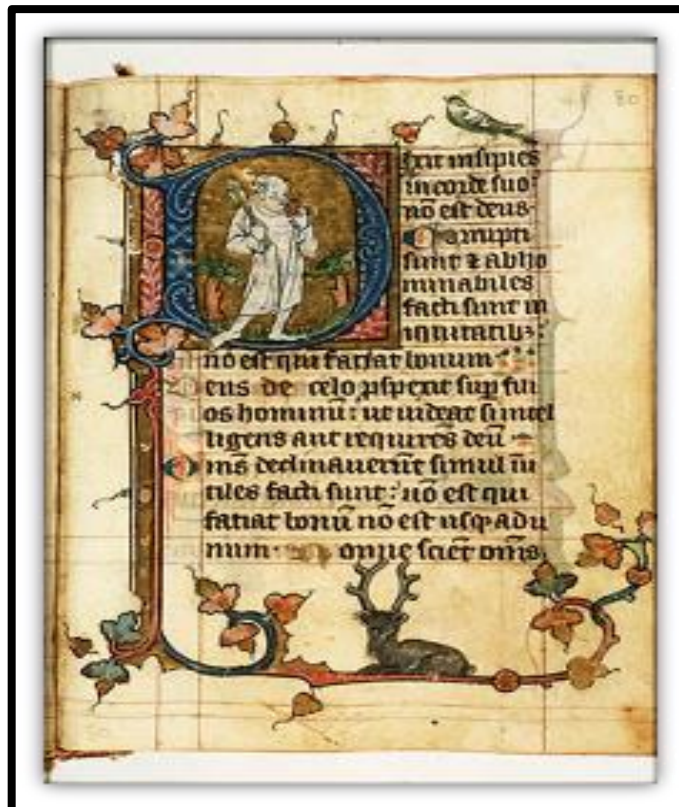 80
Dixit insipiēs
in corde suo:
nō est deus·
Corrupti
sunt ⁊ abho
minabiles
facti sunt in
iniquitatib;:
nō est qui faciat bonum
Deus de celo pspexit sup fili
os hominū: ut uideat si intel
ligens aut requirēs deū
Om̄s declinauerūt simul īu
tiles facti sunt: nō est qui
faciat bonū nō est usqꝫ ad u
num· onne scient om̄s